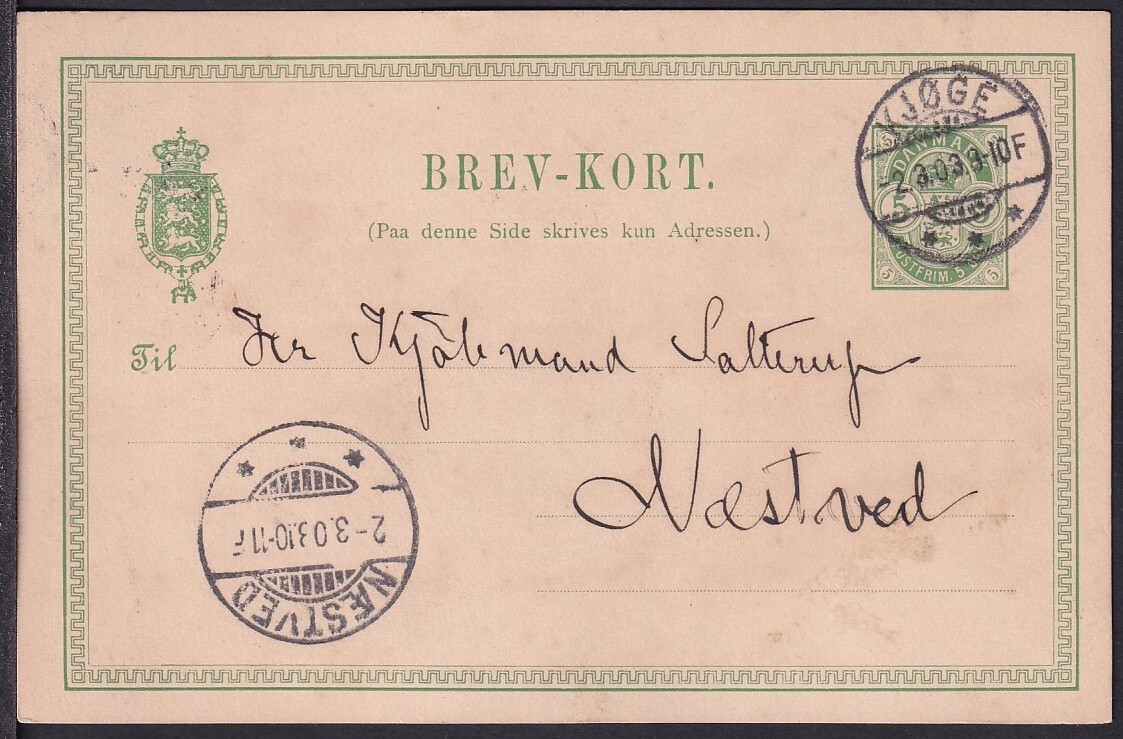 KJØGE
2.3.03.9-10F
DANMARK
5
POSTFRIM. 5
5 5
BREV-KORT.
(Paa denne Side skrives kun Adressen.)
Til Hr Kjöbmand Salterup
Næstved
NÆSTVED
2-3.03.10-11F